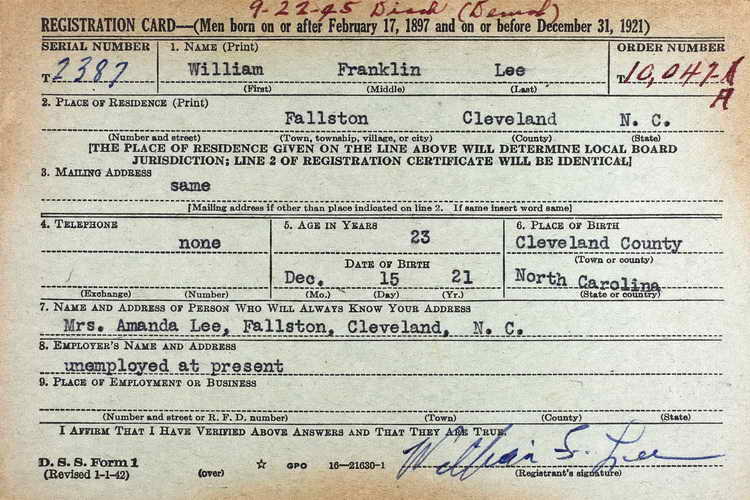 9-22-45 Disch (Demob)
REGISTRATION CARD—(Men born on or after February 17, 1897 and on or before December 31, 1921)
SERIAL NUMBER 1. NAME (Print) ORDER NUMBER
T 2387 William Franklin Lee T 10,047
A
(First) (Middle) (Last)
2. PLACE OF RESIDENCE (Print)
Fallston Cleveland N. C.
(Number and street) (Town, township, village, or city) (County) (State)
[THE PLACE OF RESIDENCE GIVEN ON THE LINE ABOVE WILL DETERMINE LOCAL BOARD
JURISDICTION; LINE 2 OF REGISTRATION CERTIFICATE WILL BE IDENTICAL]
3. MAILING ADDRESS
same
[Mailing address if other than place indicated on line 2. If same insert word same]
4. TELEPHONE 5. AGE IN YEARS 6. PLACE OF BIRTH
none 23 Cleveland County
(Town or county)
DATE OF BIRTH
Dec. 15 21 North Carolina
(Exchange) (Number) (Mo.) (Day) (Yr.) (State or country)
7. NAME AND ADDRESS OF PERSON WHO WILL ALWAYS KNOW YOUR ADDRESS
Mrs. Amanda Lee, Fallston, Cleveland, N. C.
8. EMPLOYER'S NAME AND ADDRESS
unemployed at present
9. PLACE OF EMPLOYMENT OR BUSINESS
(Number and street or R. F. D. number) (Town) (County) (State)
I AFFIRM THAT I HAVE VERIFIED ABOVE ANSWERS AND THAT THEY ARE TRUE.
William F. Lee
D. S. S. Form 1
(Revised 1-1-42) (over) ☆ GPO 16—21630-1 (Registrant's signature)